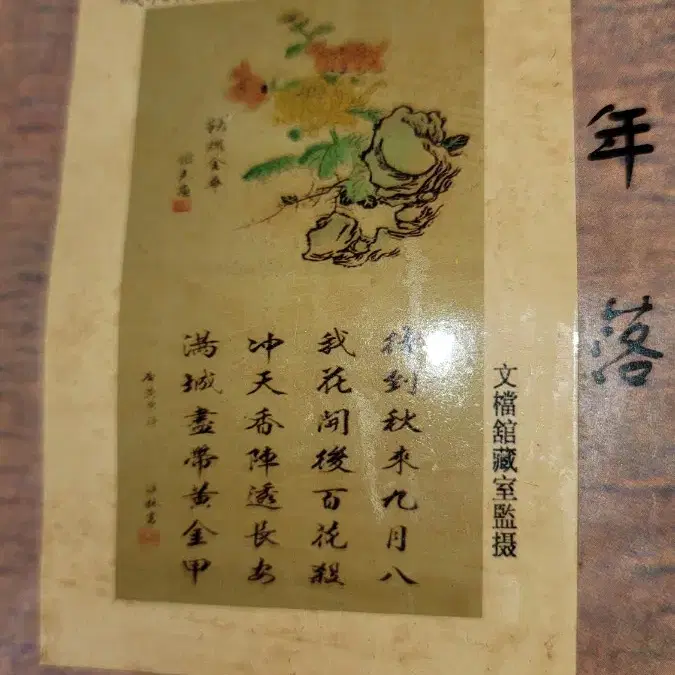 年落
文檔舘藏室監摄
待到秋來九月八
我花開後百花殺
冲天香陣透長安
满城盡帶黄金甲